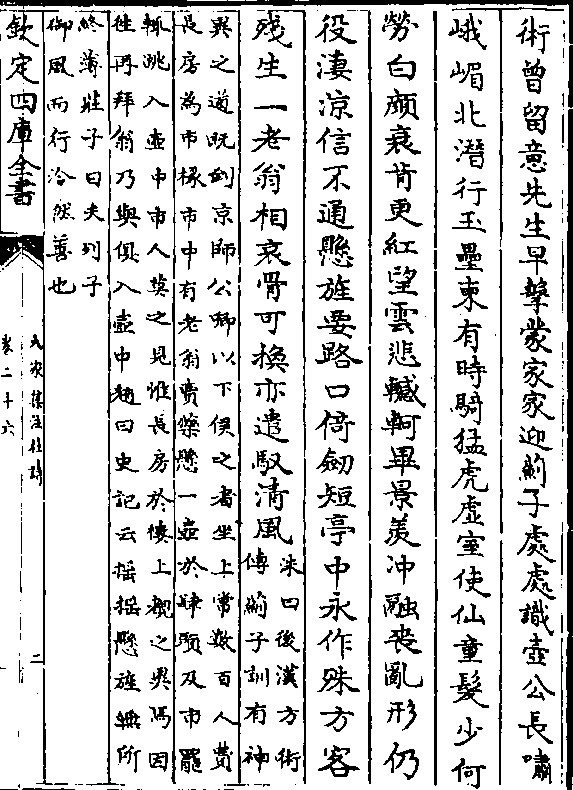 術曾留意先生早擊蒙家家迎薊子處處識壺公長嘯
峨嵋北潛行玉壘東有時騎猛虎虛室使仙童髮少何
勞白顔衰肯更紅望雲悲轗軻畢景羡冲融喪亂形仍
役淒涼信不通懸旌要路口倚劒短亭中永作殊方客
殘生一老翁相哀骨可換亦遣馭清風
洙曰後漢方術
傳薊子訓有神
異之道既到京師公卿以下候之者坐上常數百人費
長房為市椽市中有老翁賣藥懸一壺於肆頭及市罷
輒跳入壺中市人莫之見惟長房於樓上覩之異焉因
徃再拜翁乃與俱入壺中 趙曰史記云揺揺懸旌無所
終薄莊子曰夫列子
御風而行泠然善也
欽定四庫全書
九家集注杜詩
卷二十六
二